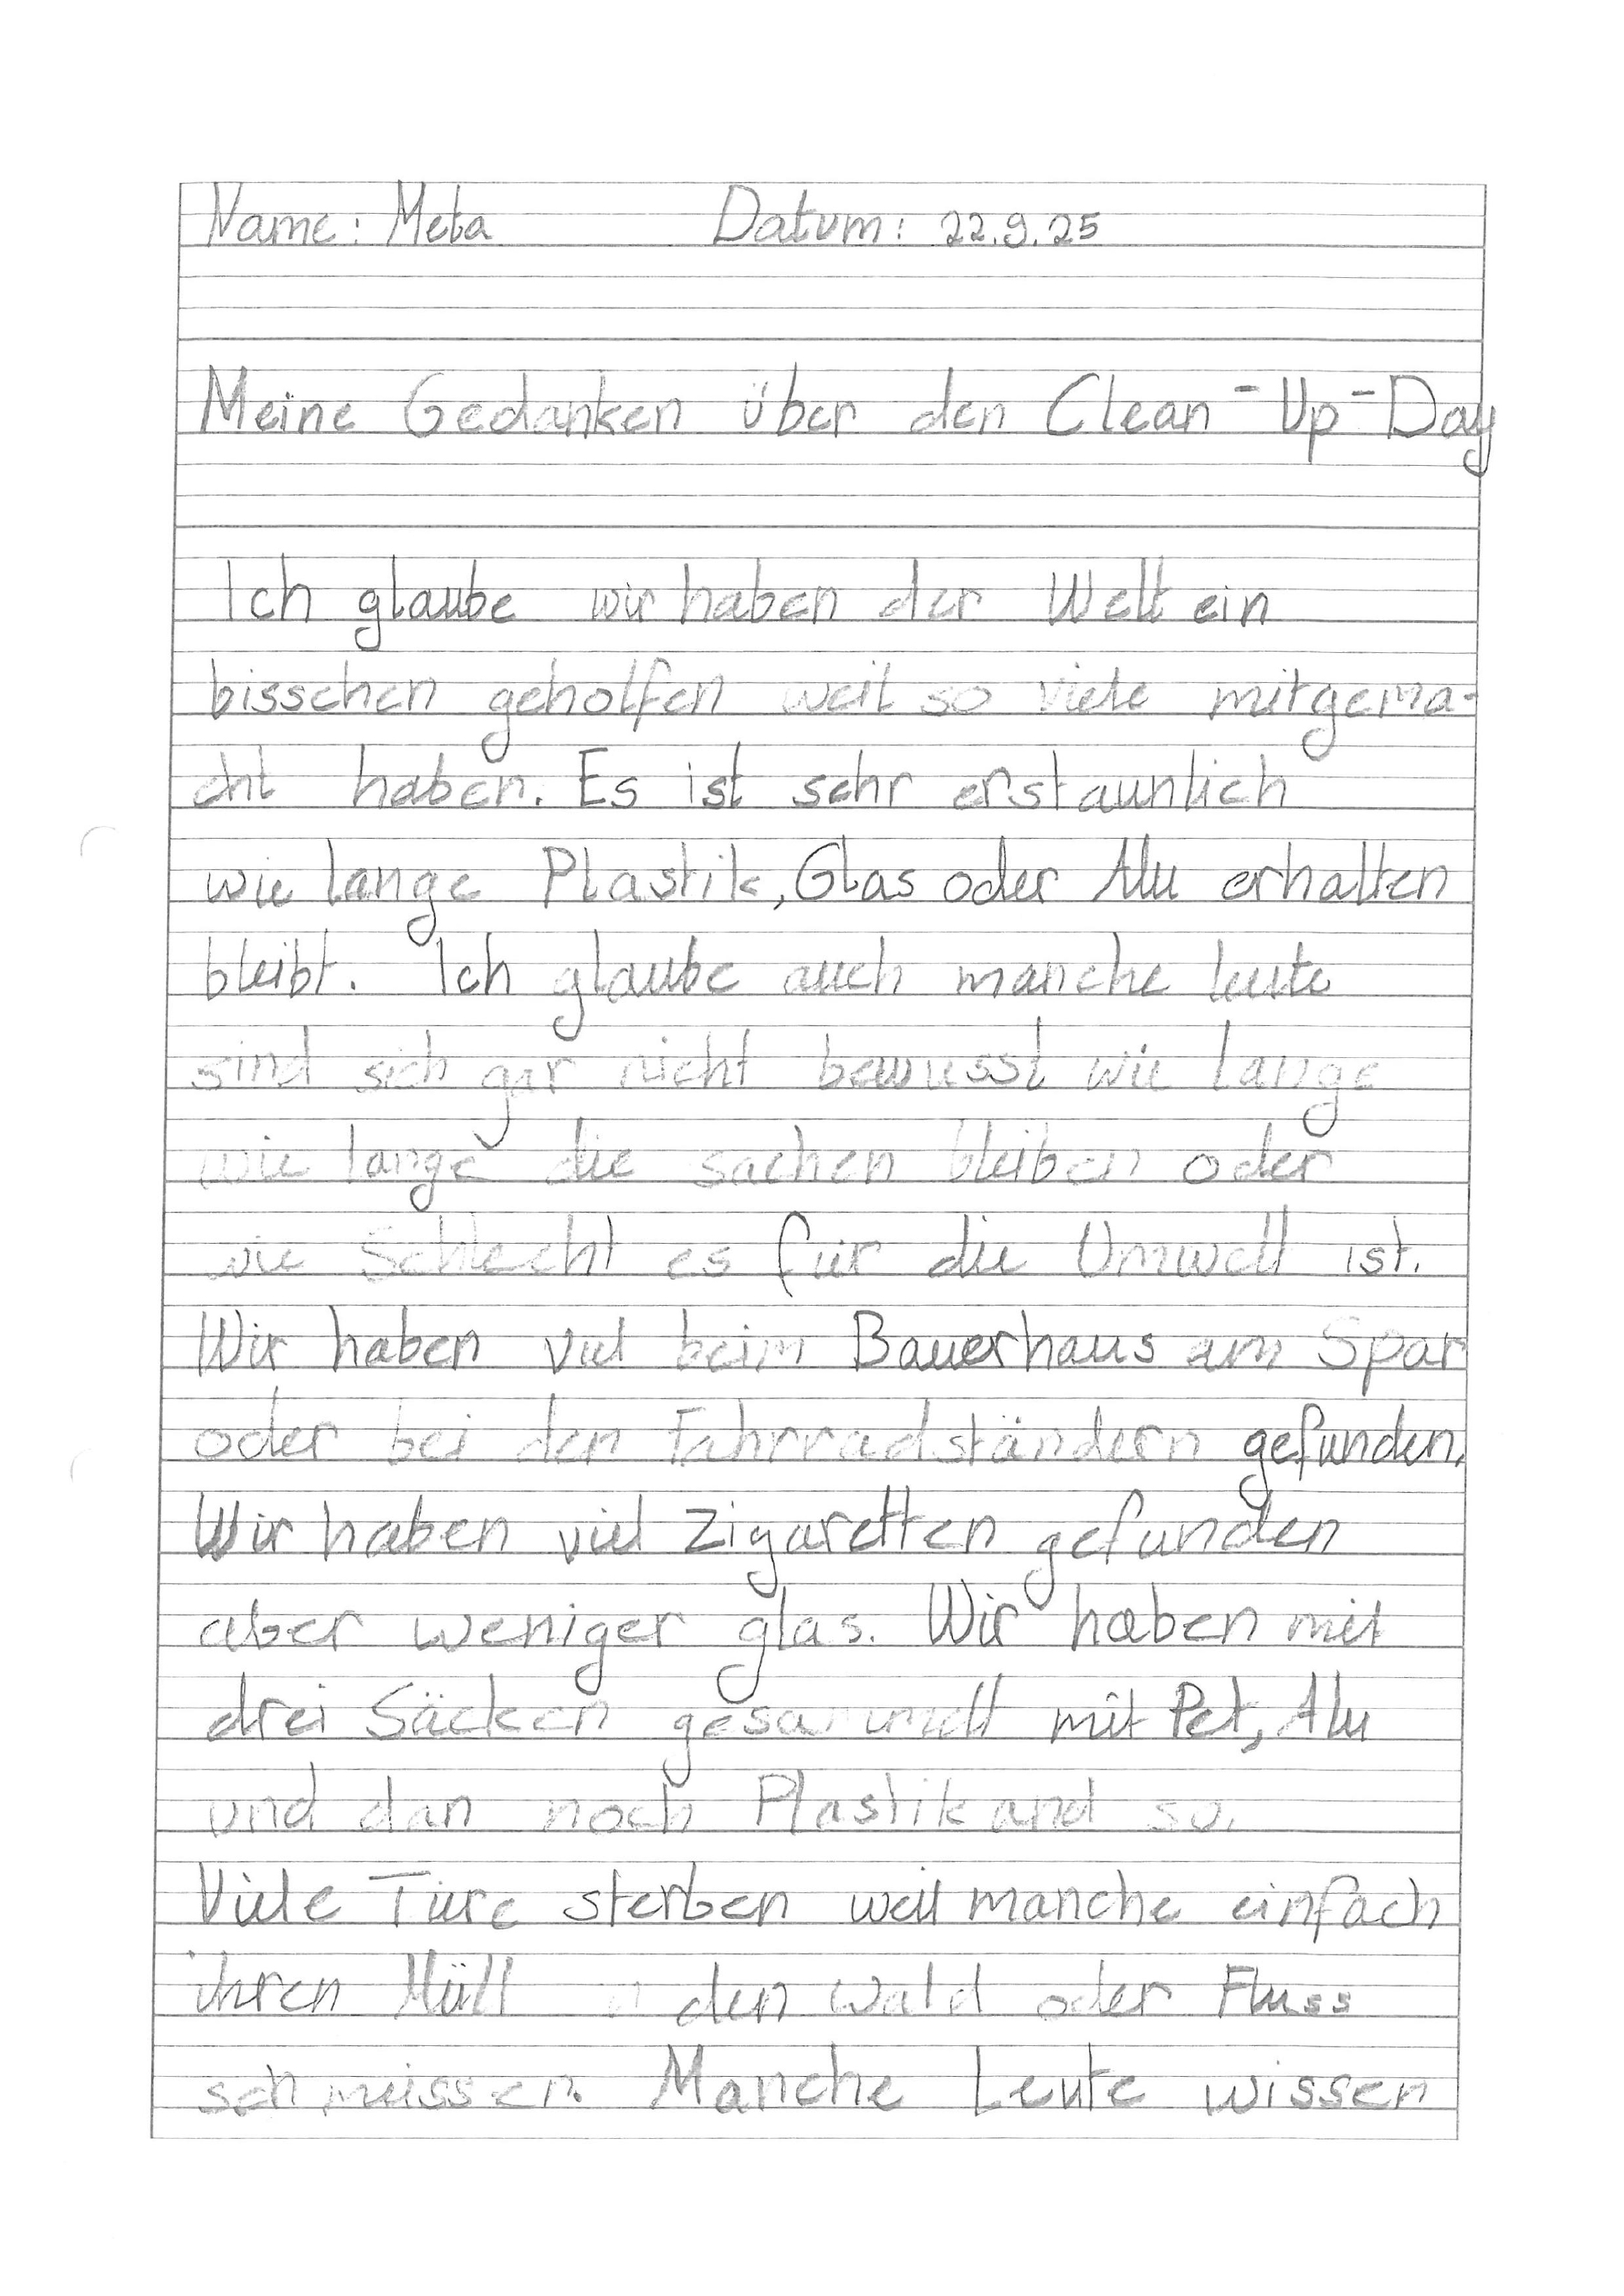 Name: Meta Datum: 22.9.25
Meine Gedanken über den Clean-Up-Day
Ich glaube wir haben der Welt ein
bisschen geholfen weil so viele mitgema-
cht haben. Es ist sehr erstaunlich
wie lange Plastik, Glas oder Alu erhalten
bleibt. Ich glaube auch manche leute
sind sich gar nicht bewusst wie lange
wie lange die sachen bleiben oder
wie Schlecht es für die Umwelt ist.
Wir haben viel beim Bauerhaus am Spar
oder bei den Fahrradständern gefunden.
Wir haben viel Zigaretten gefunden
aber weniger glas. Wir haben mit
drei Säcken gesammelt mit Pet, Alu
und dan noch Plastik and so.
Viele Tiere sterben weil manche einfach
ihren Müll in den wald oder Fluss
schmeissen. Manche Leute wissen